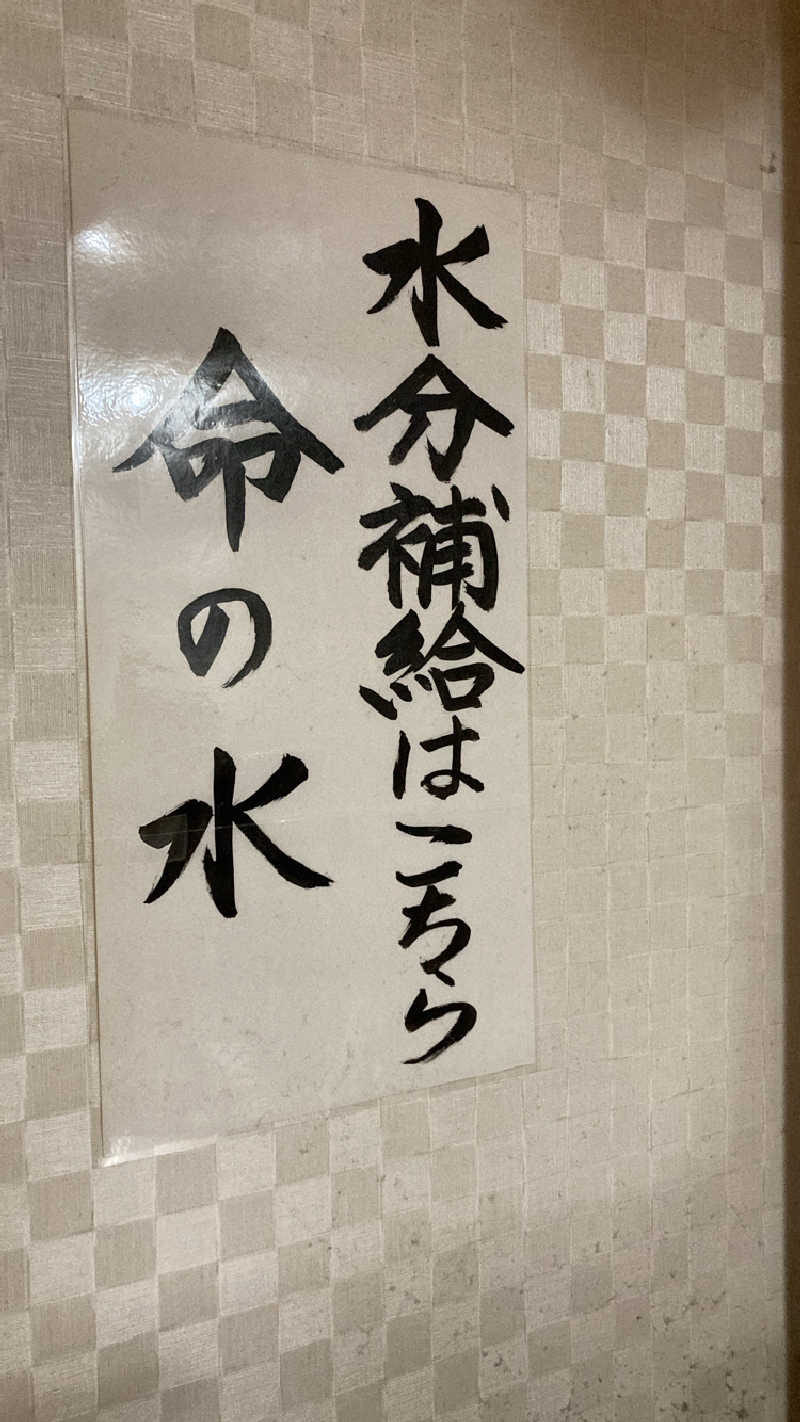 水分補給はこちら
命の水